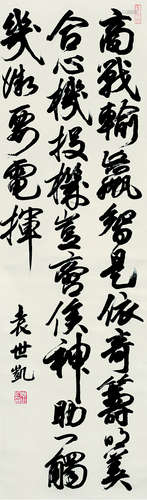 商戰輸贏智是依奇籌
合心機投機豈神助一觸
幾微要電揮
袁世凱